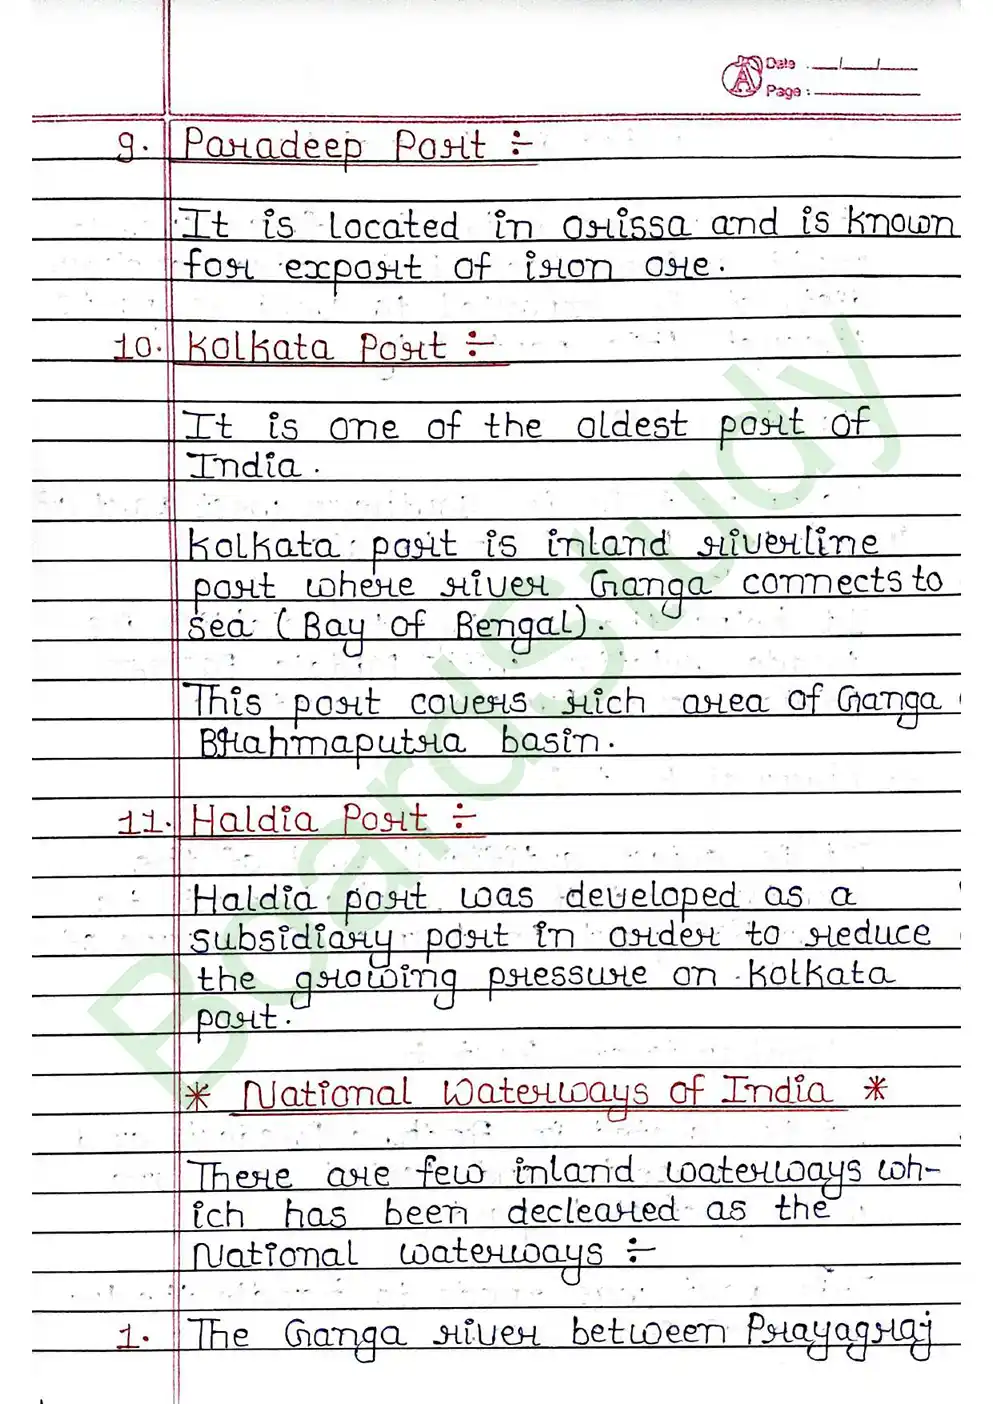 Date : __/__/__
Page :
9. Paradeep Port ÷
It is located in orissa and is known
for export of iron ore.
10. Kolkata Port ÷
It is one of the oldest port of
India.
Kolkata port is inland riverline
port where river Ganga connects to
sea (Bay of Bengal).
This port covers rich area of Ganga
Brahmaputra basin.
11. Haldia Port ÷
Haldia port was developed as a
subsidiary port in order to reduce
the growing pressure on Kolkata
port.
* National Waterways of India *
There are few inland waterways wh-
ich has been decleared as the
National waterways ÷
1. The Ganga river between Prayagraj
BoardStudy